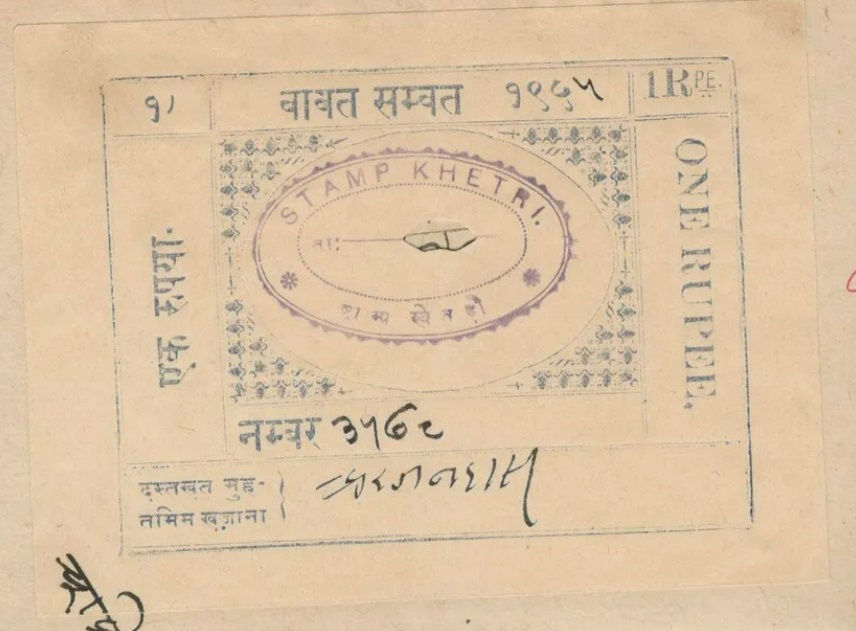 १)
बाबत सम्वत १९५५
1R PE.
एक रुपया.
STAMP KHETRI.
ता:
ष्टाम्प खेतड़ी
ONE RUPEE.
नम्बर ३५७८
दस्तखत मुह-
तमिम खज़ाना